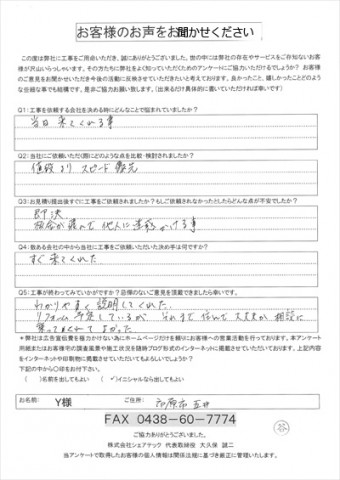 お客様のお声をお聞かせください
この度は弊社に工事をご用命いただき、誠にありがとうございます。世の中には弊社の存在やサービスをご存知ないお客
様が沢山いらっしゃいます。その方たちに弊社をよく知っていただくためのアンケートにご協力いただけるでしょうか？ お客様
のご意見をお聞かせいただき今後の活動に反映させていただきたいと考えております。良かったこと、嬉しかったことどのよう
な些細な事でも結構です。是非ご協力お願い致します。（出来るだけ具体的に書いていただければ幸いです）
Q1：工事を依頼する会社を決める時にどんなことで悩まれていましたか？
当日 来てくれる事
Q2：当社にご依頼いただく際にどのような点を比較・検討されましたか？
値段より スピード 優先
Q3：お見積り提出後すぐに工事をご依頼されましたか？もしご依頼されなかったとしたらどんな点が不安でしたか？
即決
他人に迷惑かける事
Q4：数ある会社の中から当社に工事をご依頼いただいた決め手は何ですか？
すぐ来てくれた
Q5：工事が終わってみていかがですか？忌憚のないご意見を頂戴できましたら幸いです。
わかりやすく 説明してくれた。
リフォーム予定しているが、それまで住んで大丈夫か相談に
乗ってくれて よかった
＊弊社は広告宣伝費を極力かけない為にホームページだけを頼りにお客様への営業活動を行っております。本アンケート
用紙またはお客様宅の調査風景や施工状況を随時ブログ形式のインターネットに掲載させていただいております。上記内容
をインターネットや印刷物に掲載させていただいてもよろしいでしょうか？
下記の中から〇印をお付下さい。
（　）名前を出してもよい　（✓）イニシャルなら出してもよい
お名前：　Y様　市原市
FAX 0438-60-7774
ご協力ありがとうございました。
株式会社シェアテック 代表取締役 大久保 誠二
当アンケートで取得したお客様の個人情報は関係法規に基づき厳正に管理いたします。